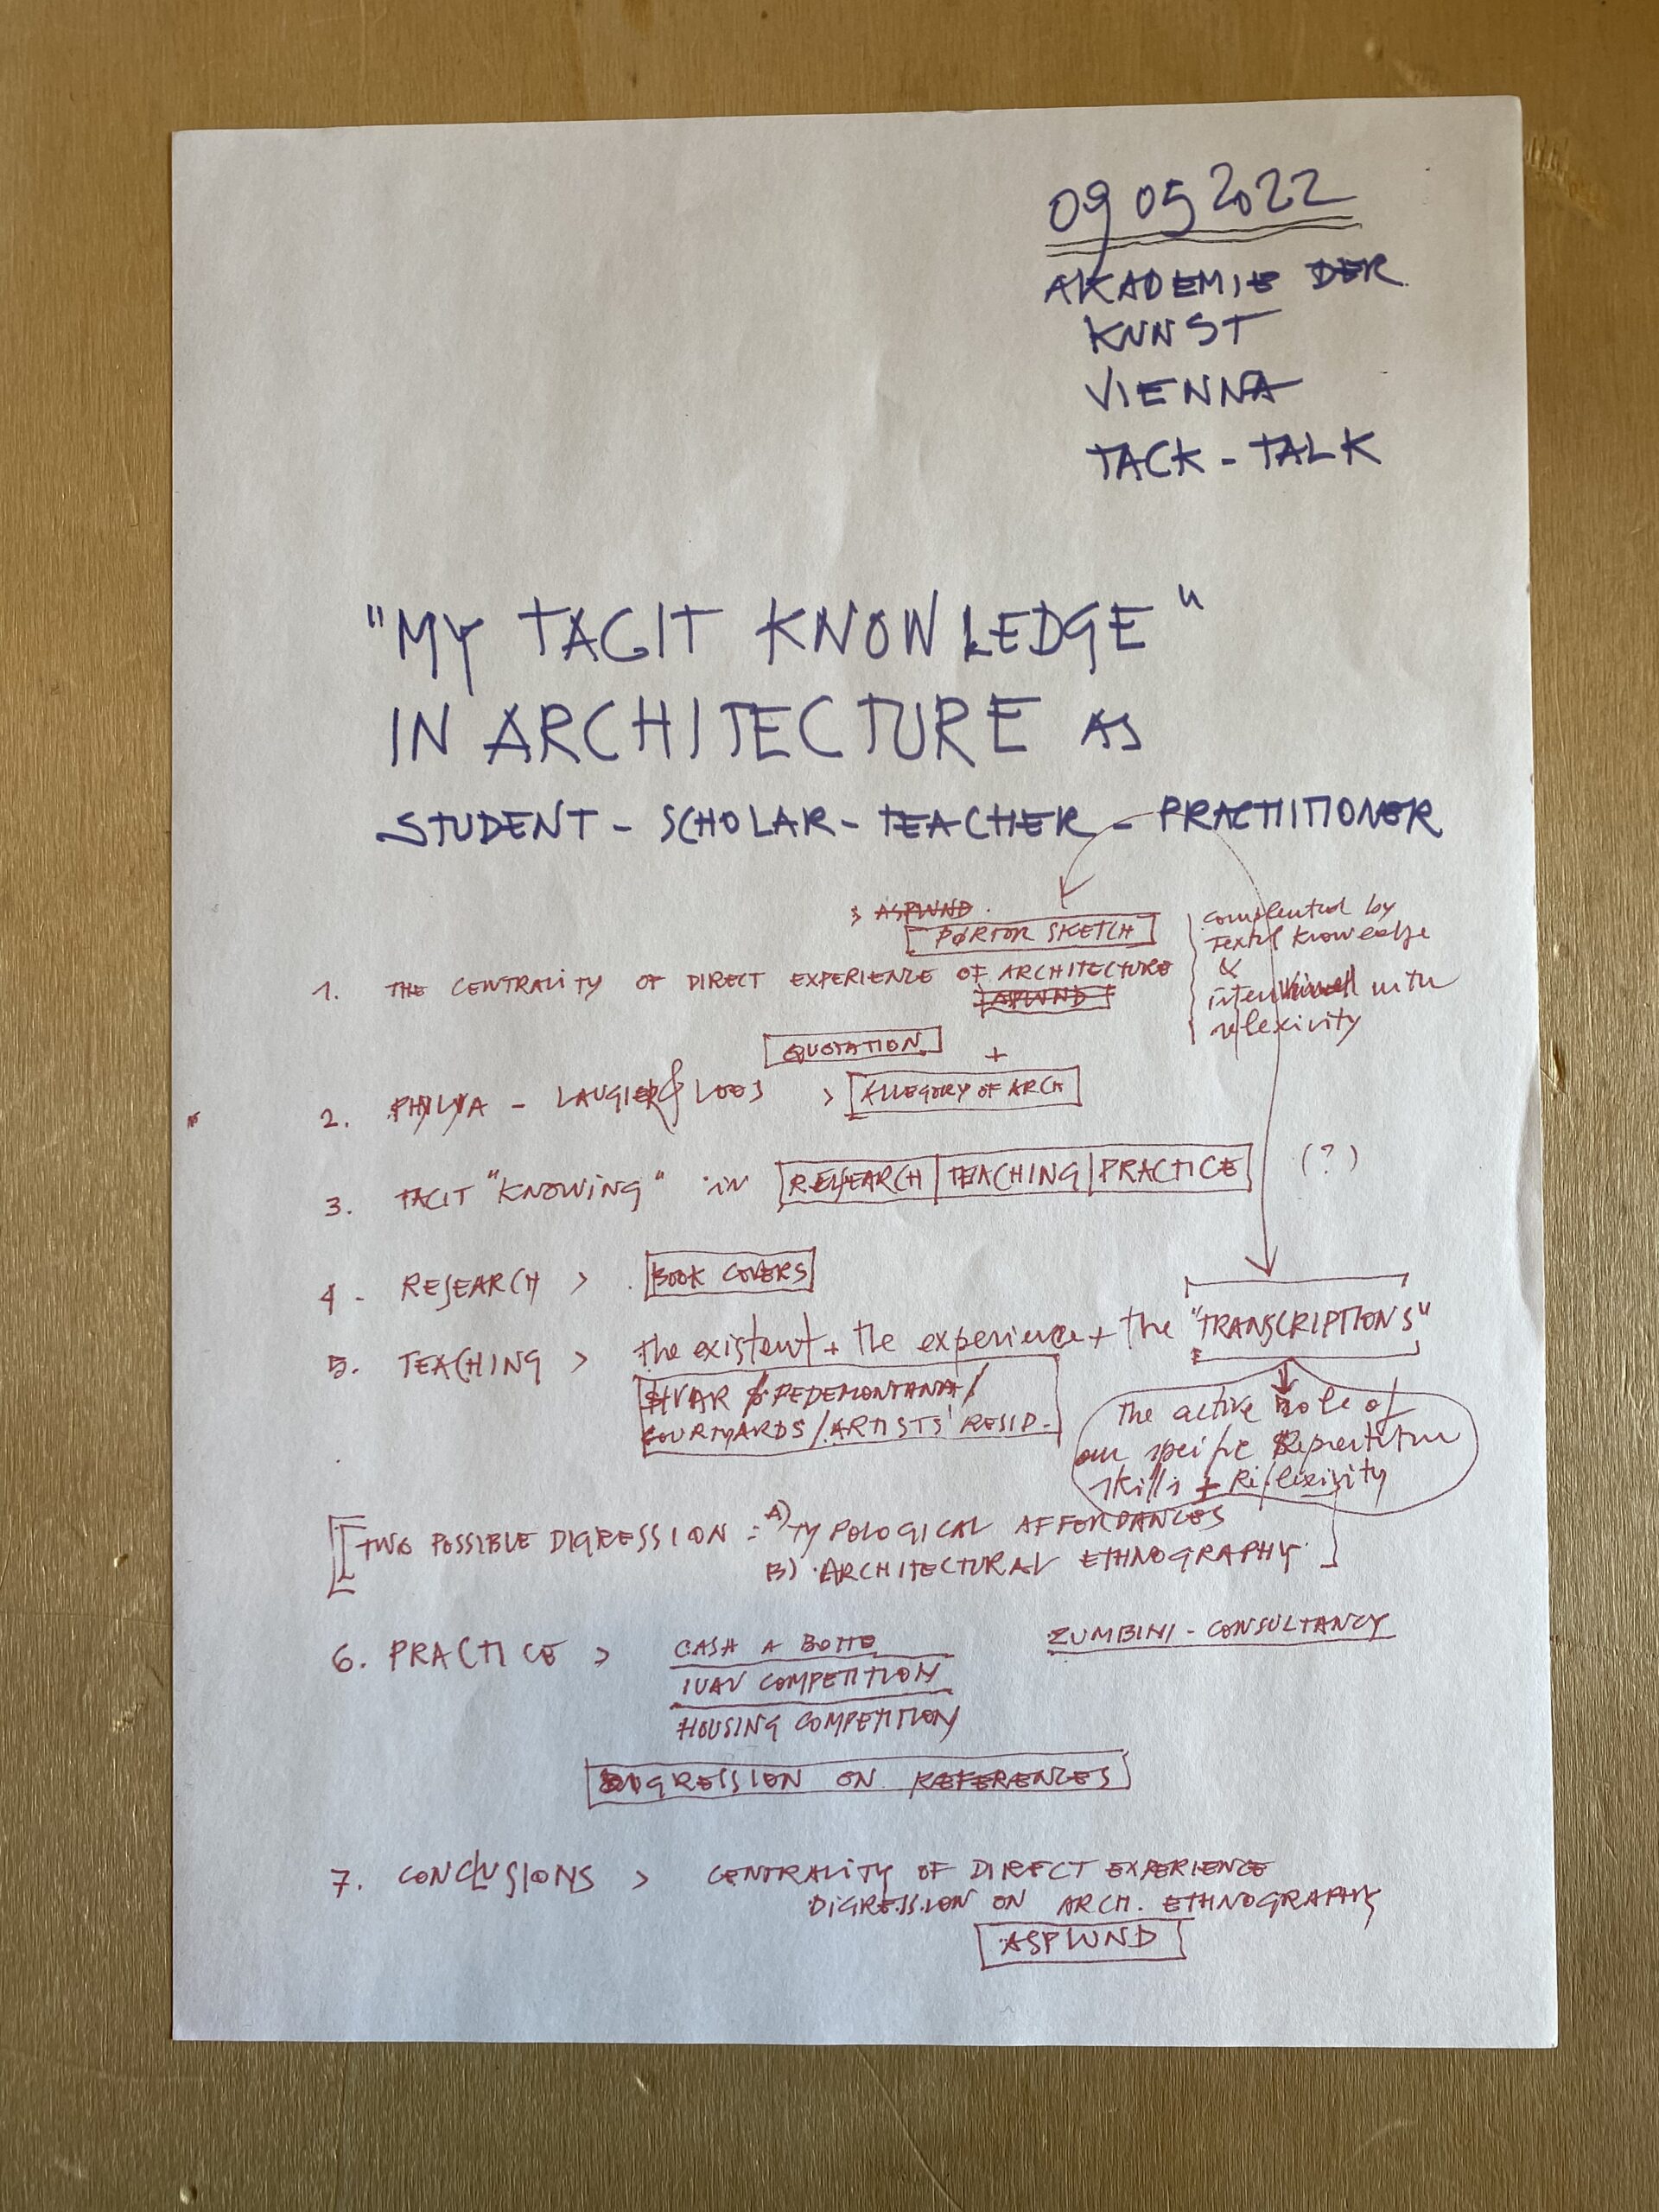 09 05 2022
AKADEMIE DER
KUNST
VIENNA
TACK - TALK
"MY TACIT KNOWLEDGE"
IN ARCHITECTURE AS
STUDENT - SCHOLAR - TEACHER - PRACTITIONER
> ASPLUND
PORTOR SKETCH
1. THE CENTRALITY OF DIRECT EXPERIENCE OF ARCHITECTURE
ASPLUND
by
Textul knowledge
&
with
reflexivity
QUOTATION +
2. - LAUGIER & LOOS > ALLEGORY OF ARCH
3. TACIT "KNOWING" in RESEARCH | TEACHING | PRACTICE (?)
4 - RESEARCH > BOOK COVERS
5. TEACHING > the existent + the experience + the "TRANSCRIPTIONS"
HVAR / PEDEMONTANA /
COURTYARDS / ARTISTS' RESID.
The active role of
our specific
skills + Reflexivity
[TWO POSSIBLE DIGRESSION = A) TYPOLOGICAL AFFORDANCES
B) ARCHITECTURAL ETHNOGRAPHY.]
6. PRACTICE > CASH A BOTTO ZUMBINI - CONSULTANCY
IUAV COMPETITION
HOUSING COMPETITION
DIGRESSION ON REFERENCES
7. CONCLUSIONS > CENTRALITY OF DIRECT EXPERIENCE
DIGRESSION ON ARCH. ETHNOGRAPHY
ASPLUND